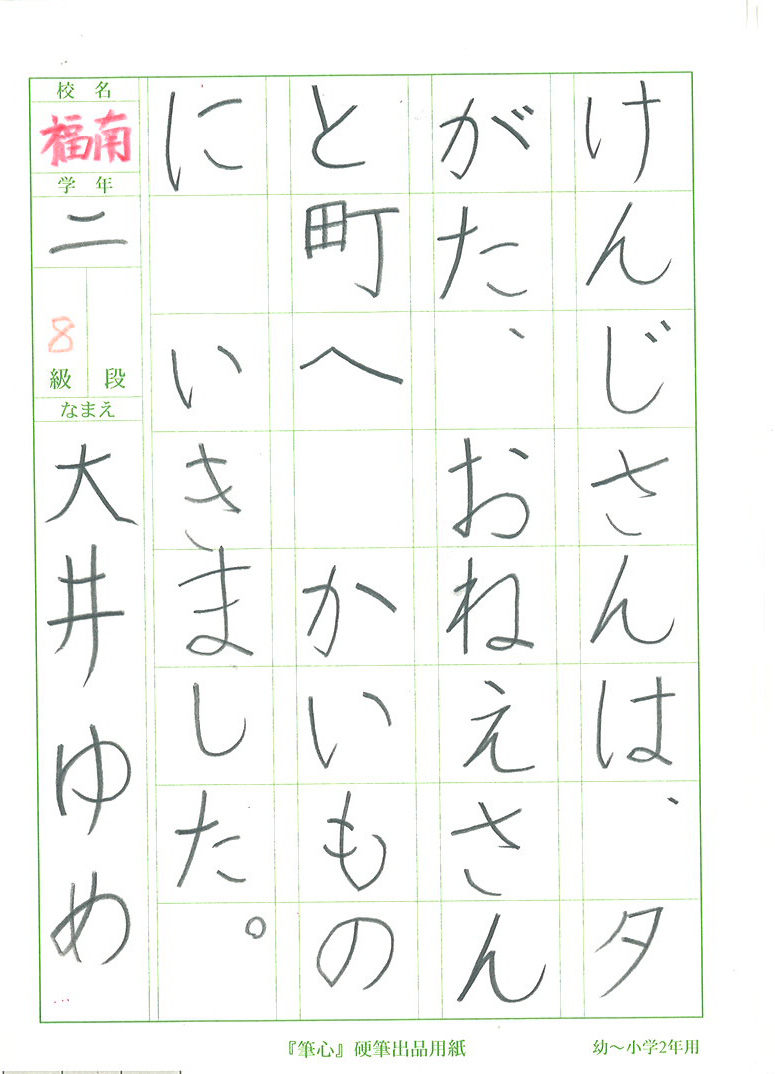 けんじさんは、夕
がた、おねえさん
と町へ かいもの
に いきました。
校名
福南
学年
二
8
級 段
なまえ
大井ゆめ
『筆心』硬筆出品用紙
幼～小学2年用